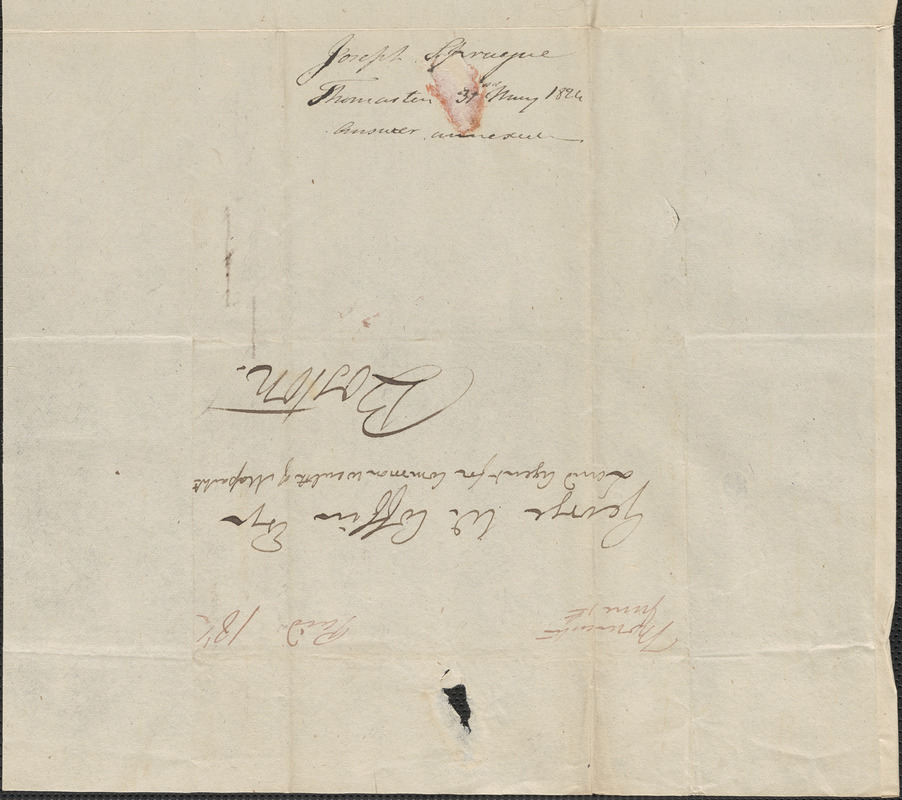 Joseph Sprague
Thomaston 31st May 1824
Answer annexed
Thomaston
June 1st
Paid 18½
George W. Coffin Esqr
Land Agent for Commonwealth of Massachts
Boston.